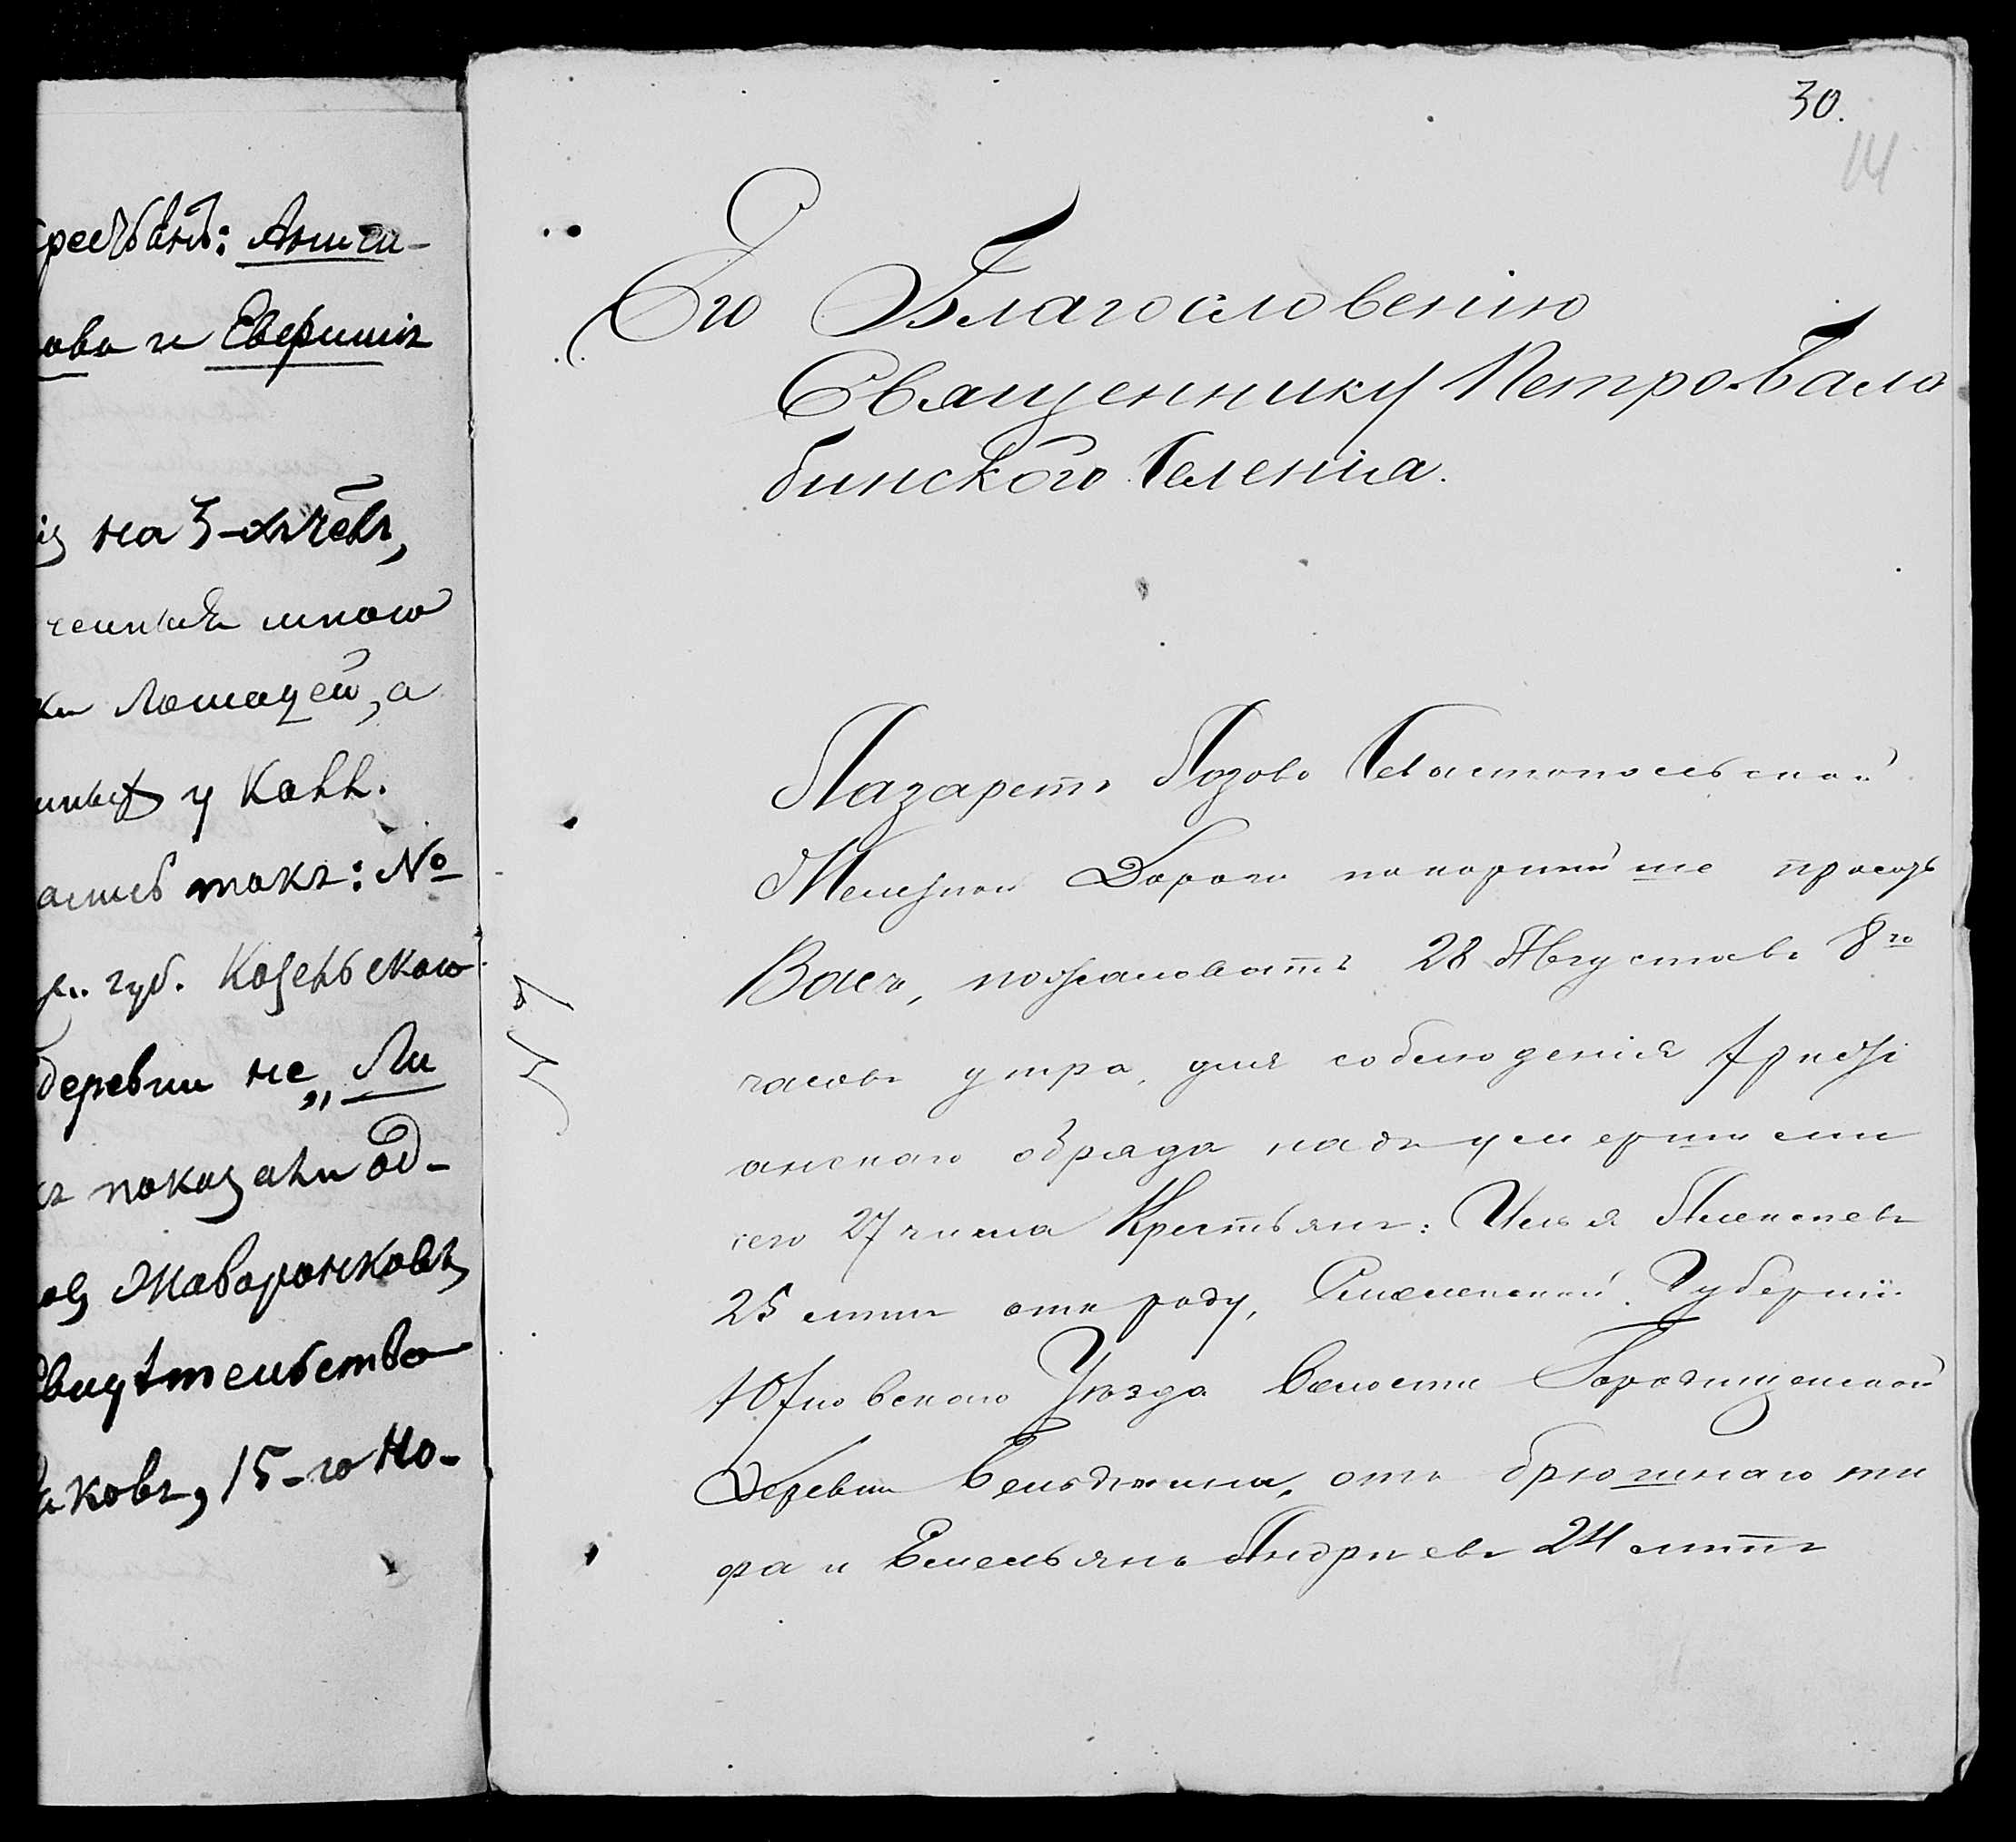 крестьянъ: Анти-
ова и Евфимія
на 3-хъ чел.,
мною
Лошадей, а
у Конн.
такъ: №
губ. Козельскаго
деревни не „Ли
показаны од-
Жаворонковъ
Свидѣтельство
аковъ, 15-го Но-
30.
14
Его Благословенію
Священнику Петро-Бала
бинского Селенія.
Лазаретъ Лозово Севастопольской
Железной Дороги покорнѣйше проситъ
Васъ, пожаловать 28 Августа въ 8го
часовъ утра, для соблюденія Христі
анскаго обряда надъ умершими
сего 27 числа Крестьянъ: Илья
25 лѣтъ отъ роду, Смоленской Губерніи
Юхновскаго Уѣзда Волости Городищенской
Деревни отъ брюшнаго ти
фа и Емельянъ Андреевъ 24 лѣтъ